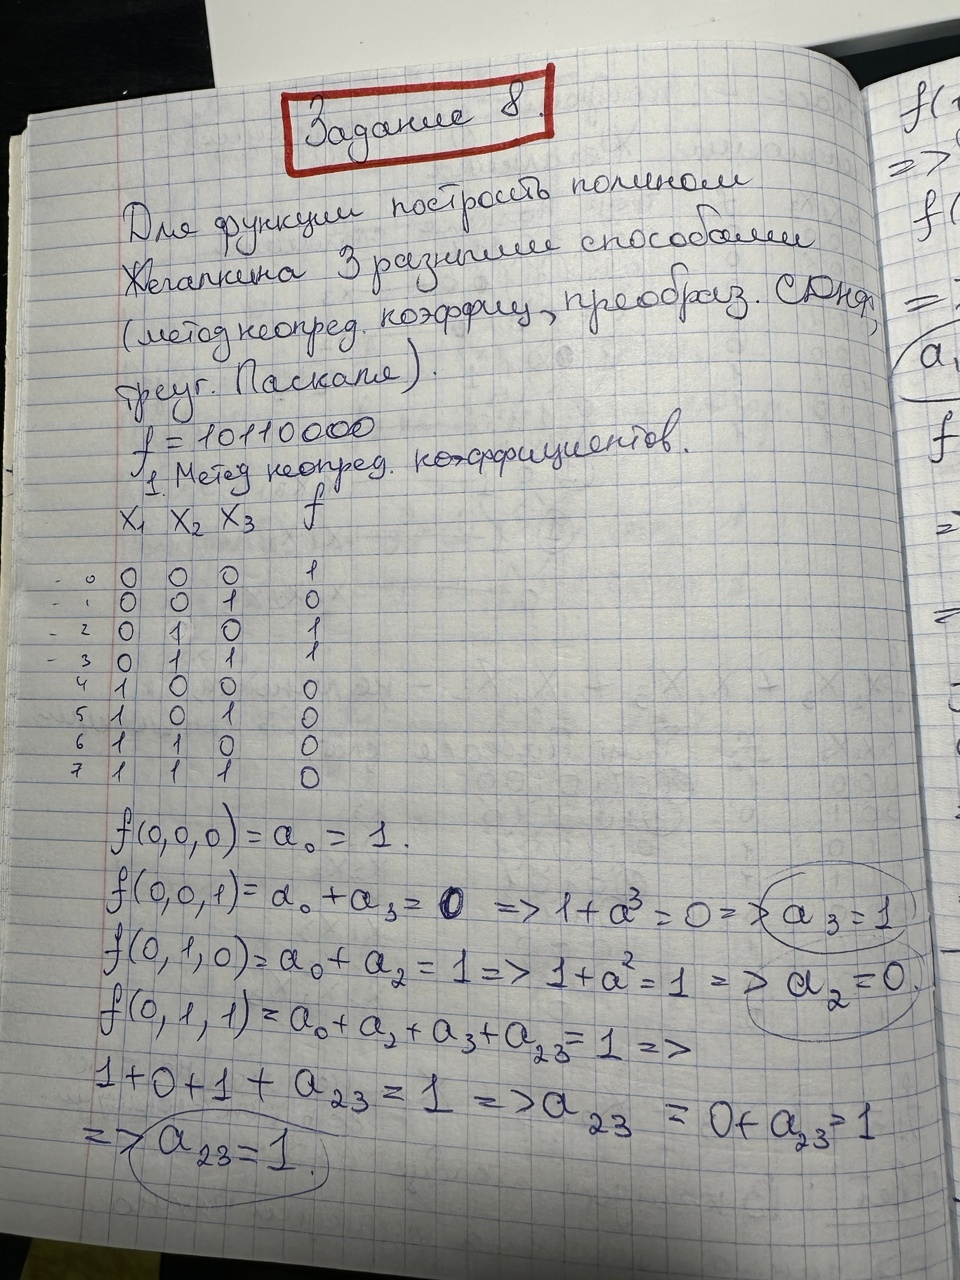 Задание 8.
Для функции построить полином
Жегалкина 3 разными способами
(метод неопред. коэффиц, преобраз. СКНФ,
треуг. Паскаля).
f = 10110000
1. Метод неопред. коэффициентов.
x₁ x₂ x₃ f
- 0 0 0 0 1
- 1 0 0 1 0
- 2 0 1 0 1
- 3 0 1 1 1
4 1 0 0 0
5 1 0 1 0
6 1 1 0 0
7 1 1 1 0
f(0,0,0) = a₀ = 1.
f(0,0,1) = a₀ + a₃ = 0 => 1 + a³ = 0 => a₃ = 1
f(0,1,0) = a₀ + a₂ = 1 => 1 + a² = 1 => a₂ = 0.
f(0,1,1) = a₀ + a₂ + a₃ + a₂₃ = 1 =>
1 + 0 + 1 + a₂₃ = 1 => a₂₃ = 0 + a₂₃ = 1
=> a₂₃ = 1.
f(
=>
f(
=
a₁
f
=
=